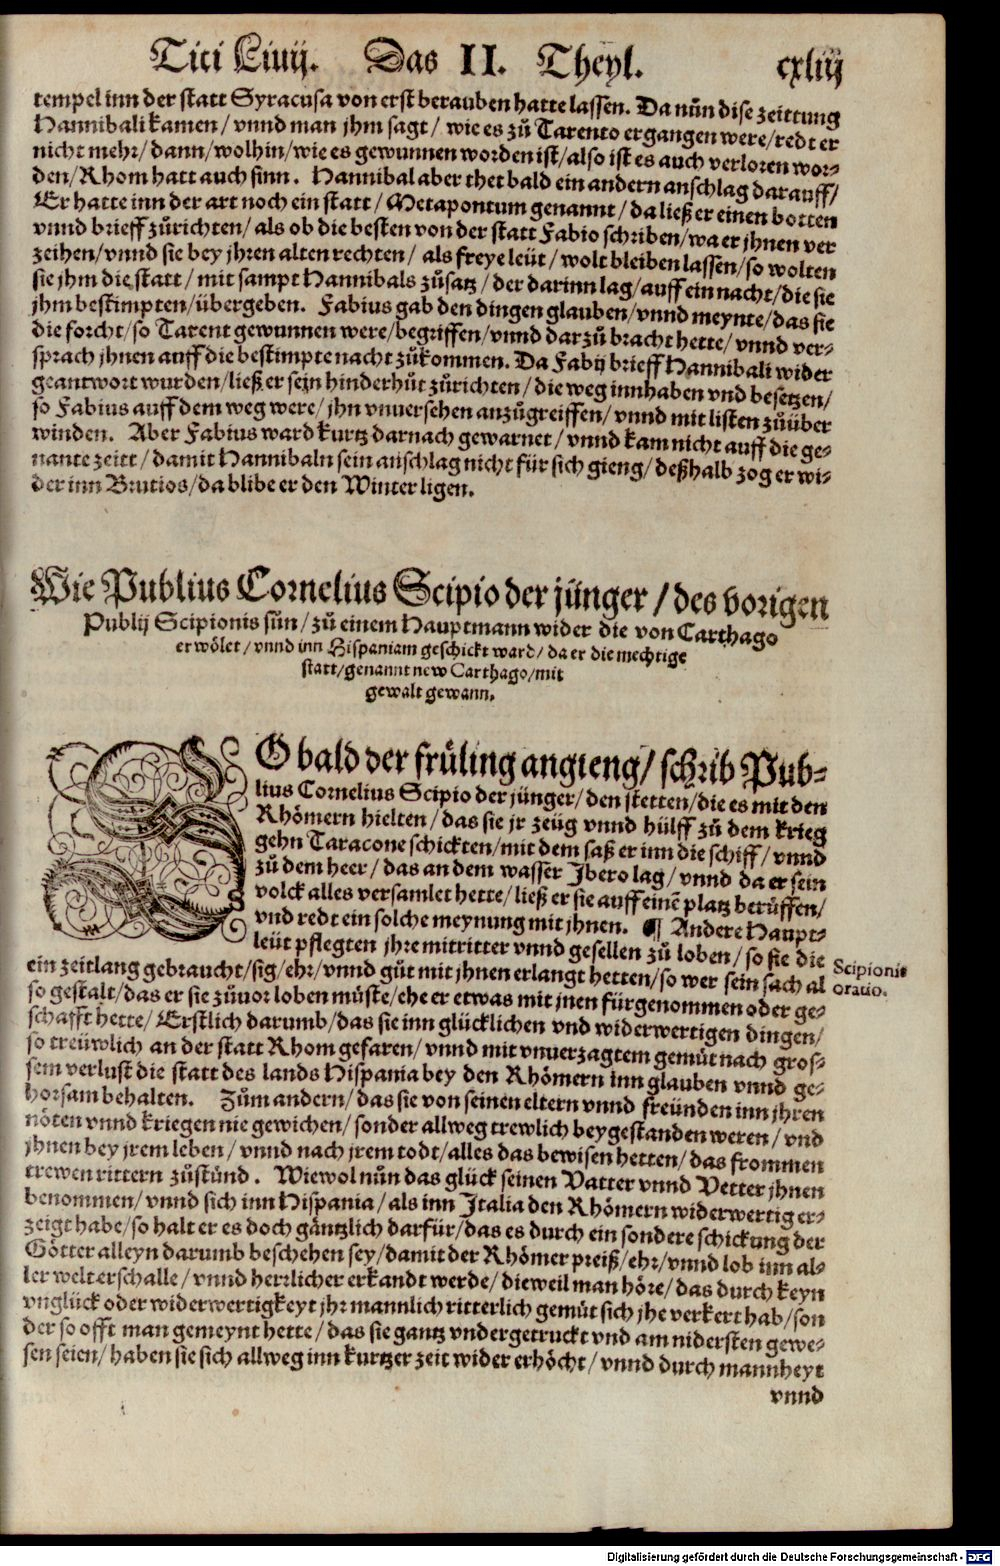 Titi Liuij. Das II. Theyl. cxliij
tempel inn der statt Syracusa von erst berauben hatte lassen. Da nůn dise zeittung
Hannibali kamen / vnnd man jhm sagt / wie es zů Tarento ergangen were / redt er
nicht mehr / dann / wolhin / wie es gewunnen worden ist / also ist es auch verloren wor-
den / Rhom hatt auch sinn. Hannibal aber thet bald ein andern anschlag darauff /
Er hatte inn der art noch ein statt / Metapontum genannt / da ließ er einen botten
vnnd brieff zůrichten / als ob die besten von der statt Fabio schriben / wa er jhnen ver
zeihen / vnnd sie bey jhren alten rechten / als freye leüt / wolt bleiben lassen / so wolten
sie jhm die statt / mit sampt Hannibals zůsatz / der darinn lag / auff ein nacht / die sie
jhm bestimpten / übergeben. Fabius gab den dingen glauben / vnnd meynte / das sie
die forcht / so Tarent gewunnen were / begriffen / vnnd darzů bracht hette / vnnd ver-
sprach jhnen auff die bestimpte nacht zůkommen. Da Fabij brieff Hannibali wider
geantwort wurden / ließ er sein hinderhůt zůrichten / die weg innhaben vnd besetzen /
so Fabius auff dem weg were / jhn vnuersehen anzůgreiffen / vnnd mit listen zůüber
winden. Aber Fabius ward kurtz darnach gewarnet / vnnd kam nicht auff die ge-
nante zeitt / damit Hannibaln sein anschlag nicht für sich gieng / deßhalb zog er wi-
der inn Brutios / da blibe er den Winter ligen.
Wie Publius Cornelius Scipio der jünger / des vorigen
Publij Scipionis sůn / zů einem Hauptmann wider die von Carthago
erwölet / vnnd inn Hispaniam geschickt ward / da er die mechtige
statt / genannt new Carthago / mit
gewalt gewann.
SO bald der früling angieng / schrib Pub-
lius Cornelius Scipio der jünger / den stetten / die es mit den
Rhömern hielten / das sie jr zeüg vnnd hülff zů dem krieg
gehn Taracone schickten / mit dem saß er inn die schiff / vnnd
zů dem heer / das an dem wasser Jbero lag / vnnd da er sein
volck alles versamlet hette / ließ er sie auff einē platz berůffen /
vnd redt ein solche meynung mit jhnen. ¶ Andere Haupt-
leüt pflegten jhre mitritter vnnd gesellen zů loben / so sie die
ein zeitlang gebraucht / sig / ehr / vnnd gůt mit jhnen erlangt hetten / so wer sein sach al
so gestalt / das er sie zůuor loben můste / ehe er etwas mit jnen fürgenommen oder ge-
schafft hette / Erstlich darumb / das sie inn glücklichen vnd widerwertigen dingen /
so treüwlich an der statt Rhom gefaren / vnnd mit vnuerzagtem gemůt nach gros-
sem verlust die statt des lands Hispania bey den Rhömern inn glauben vnnd ge-
horsam behalten. Zům andern / das sie von seinen eltern vnnd freünden inn jhren
nöten vnnd kriegen nie gewichen / sonder allweg trewlich beygestanden weren / vnd
jhnen bey jrem leben / vnnd nach jrem todt / alles das bewisen hetten / das frommen
trewen rittern zůstünd. Wiewol nůn das glück seinen Vatter vnnd Vetter jhnen
benommen / vnnd sich inn Hispania / als inn Italia den Rhömern widerwertig er-
zeigt habe / so halt er es doch gäntzlich darfür / das es durch ein sondere schickung der
Götter alleyn darumb beschehen sey / damit der Rhömer preiß / ehr / vnnd lob inn al-
ler welt erschalle / vnnd herrlicher erkandt werde / dieweil man höre / das durch keyn
vnglück oder widerwertigkeyt jhr mannlich ritterlich gemůt sich jhe verkert hab / son
der so offt man gemeynt hette / das sie gantz vndergetruckt vnd am nidersten gewe-
sen seien / haben sie sich allweg inn kurtzer zeit wider erhöcht / vnnd durch mannheyt
vnnd
Scipionis
oratio.
Digitalisierung gefördert durch die Deutsche Forschungsgemeinschaft - DFG